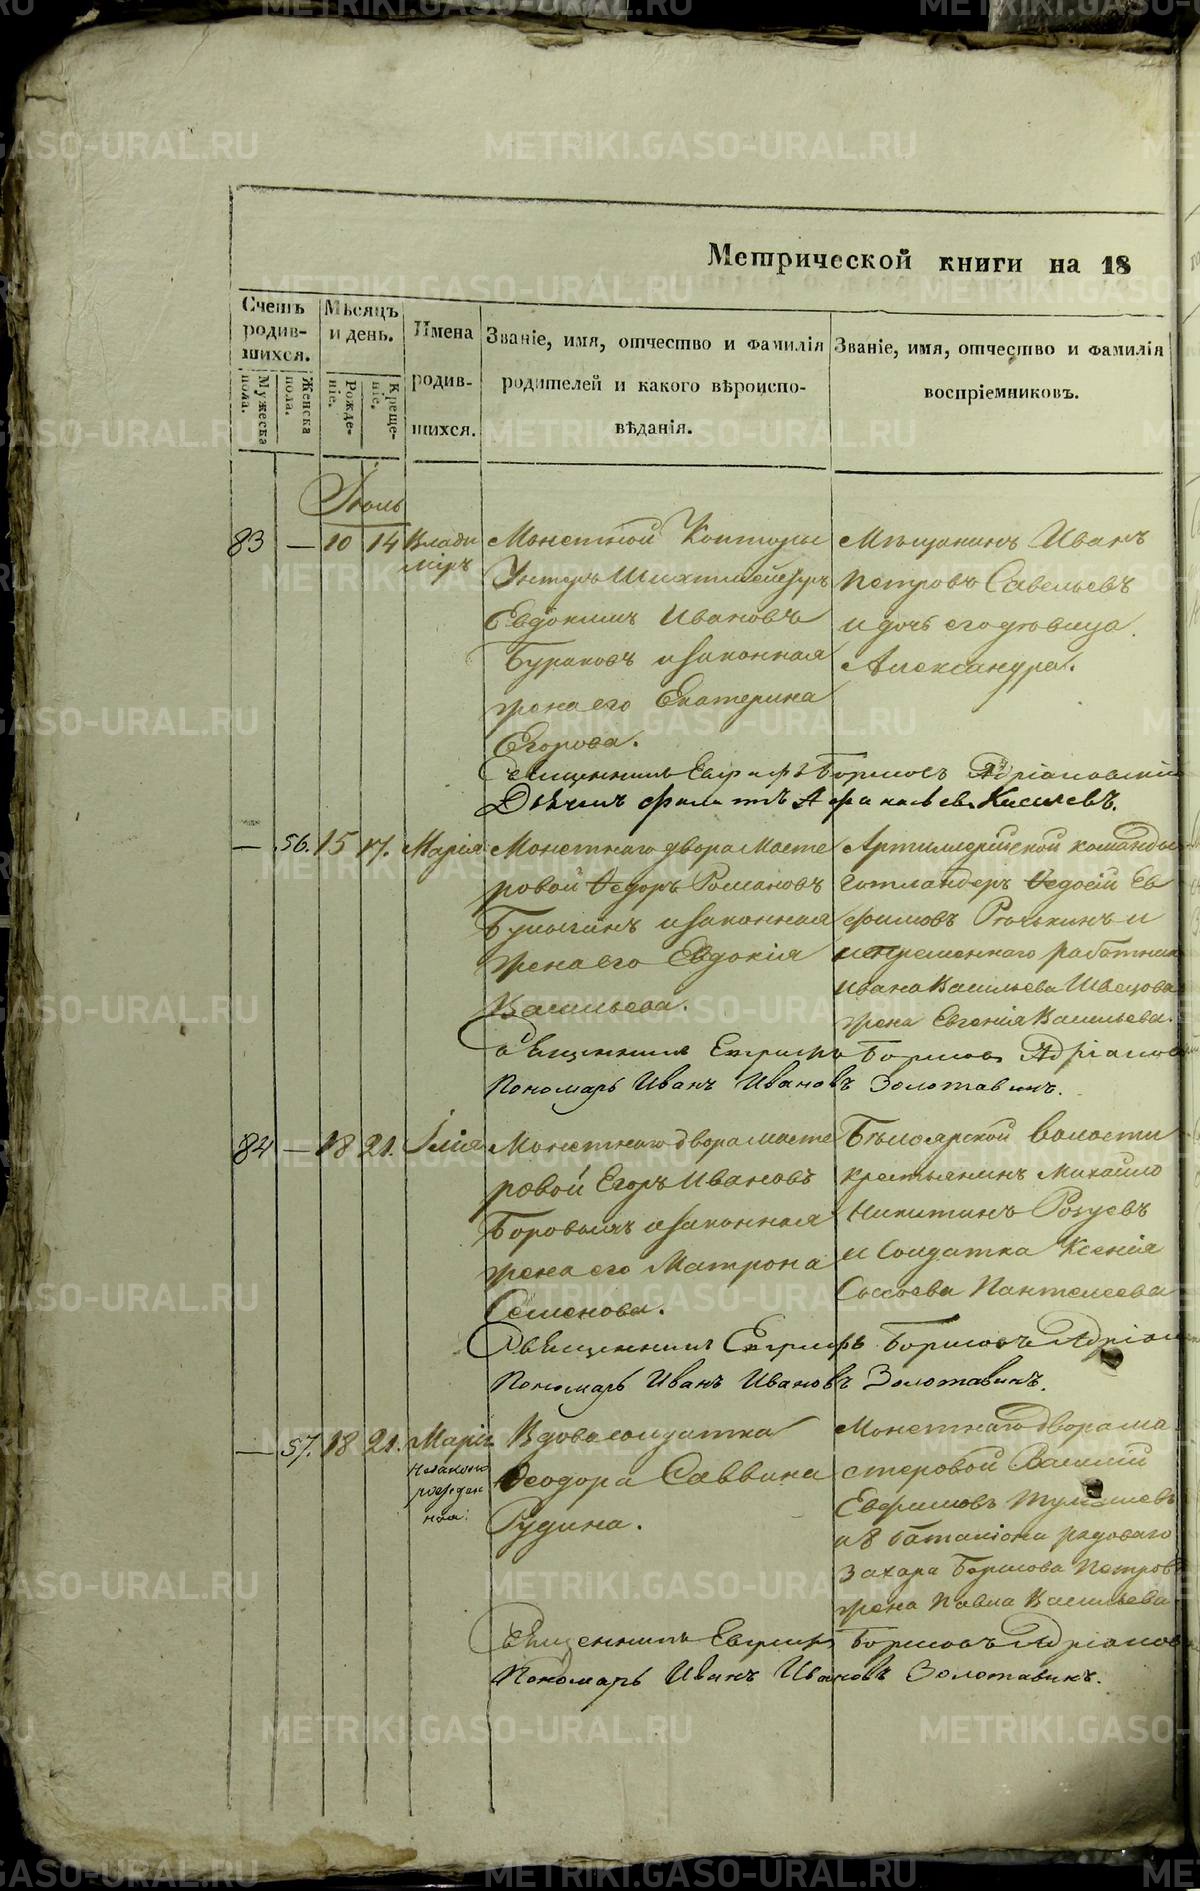 Метрической книги на 18
Счетъ родив-шихся.
Мужеска пола.
Женска пола.
Мѣсяцъ и день.
Рожде-ніе.
Креще-ніе.
Имена родив-шихся.
Званіе, имя, отчество и фамилія родителей и какого вѣроиспо-вѣданія.
Званіе, имя, отчество и фамилія воспріемниковъ.
Іюль
83 — 10 14 Влади
міръ
Монетной Конторы
Унтеръ Шихтмейстеръ
Евдокимъ Ивановъ
Бураковъ и законная
жена его Екатерина
Егорова.
Мѣщанинъ Иванъ
Петровъ Савельевъ
и дочь его дѣвица
Александра.
Священникъ Евграфъ Борисовъ Адріановскій
Дьячекъ Филиппъ Афанасьевъ Киселевъ.
— 56. 15 17. Марія
Монетнаго двора масте
ровой Ѳедоръ Романовъ
и законная
жена его Евдокія
Васильева.
Артиллерійской команды
Ѳедосій Ев
фимовъ и
непременнаго работника
Ивана Васильева Швецова
жена Евгенія Васильева.
Священникъ Евграфъ Борисовъ Адріанов
Пономарь Иванъ Ивановъ Золотавинъ.
84 — 18 21. Илія
Монетнаго двора масте
ровой Егоръ Ивановъ
и законная
жена его Матрона
Семенова.
Бѣлоярской волости
крестьянинъ Михайло
Никитинъ
и Солдатка Ксенія
Сысоева Пантелеева
Священникъ Евграфъ Борисовъ Адріан
Пономарь Иванъ Ивановъ Золотавинъ.
— 57. 18 21. Марія
Незаконо
рожден
ная.
Вдова солдатка
Ѳеодора Саввина
Рудина.
Монетнаго двора ма
стеровой Василий
Евфимовъ
и 8 баталіона рядоваго
Захара Борисова Петров
жена Павла Васильева
Священникъ Евграфъ Борисовъ Адріанов
Пономарь Иванъ Ивановъ Золотавинъ.
METRIKI.GASO-URAL.RU